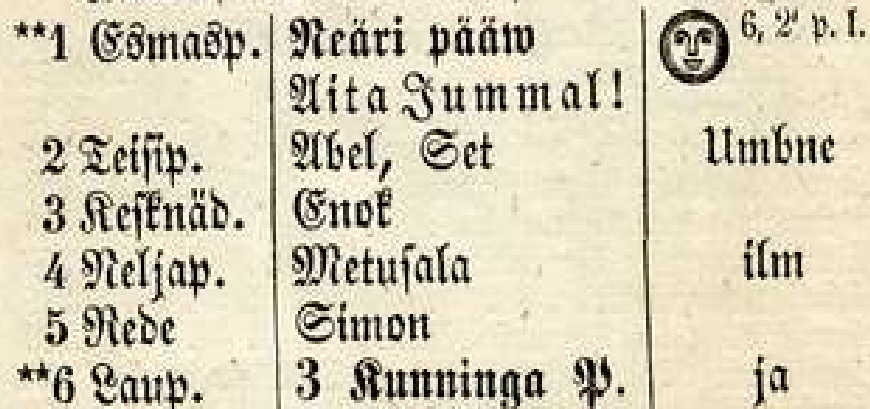 **1 Esmasp. Neäri pääw 6, 2' p. l.
Aita Jummal!
2 Teisip. Abel, Set Umbne
3 Kesknäd. Enok
4 Neljap. Metusala ilm
5 Rede Simon
**6 Laup. 3 Kunninga P. ja